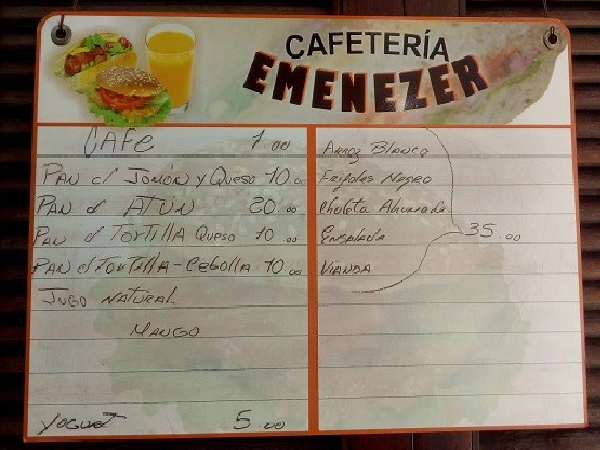 CAFETERÍA
EMENEZER
CAFE 1 00
PAN c/ JAMÓN y QUESO 10.00
PAN c/ ATÚN 20.00
PAN c/ TORTILLA QUESO 10.00
PAN c/ TORTILLA-CEBOLLA 10.00
JUGO NATURAL
MANGO
YOGURT 5.00
ARROZ BLANCO
FRIJOLES NEGRO
CHULETA AHUMADA 35.00
ENSALADA
VIANDA